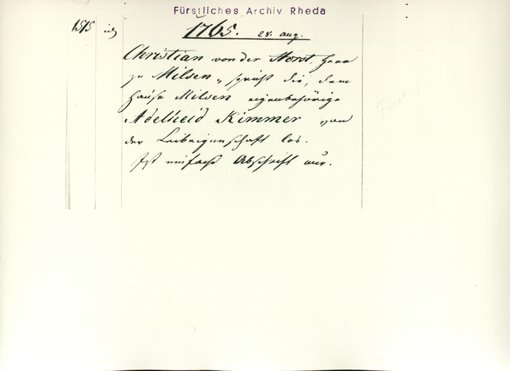 Fürstliches Archiv Rheda
1765. 28. aug.
Christian von der Horst, Herr
zu Milsen, spricht die, dem
Hause Milsen eigenbehörige
Adelheid Kimmer von
der Leibeigenschaft los.
Ist einfache Abschrift nur.